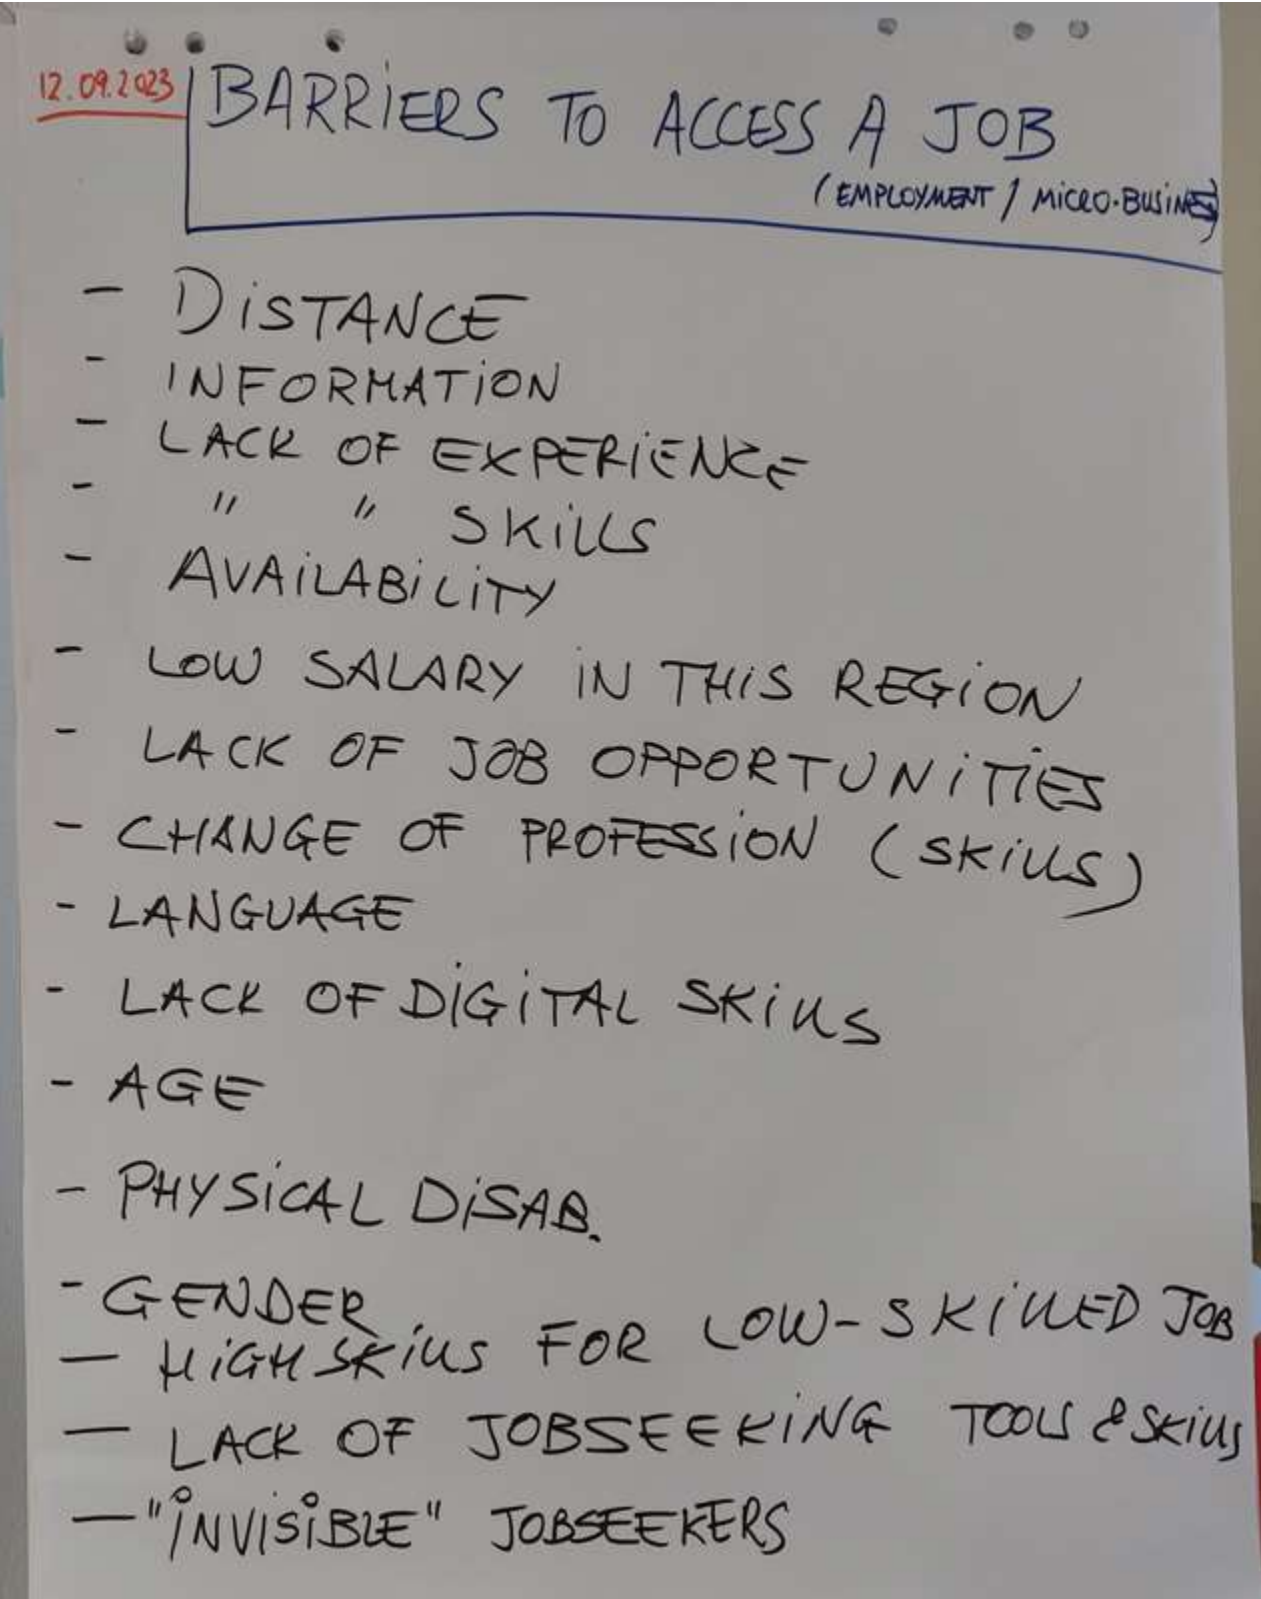 12.09.2023
BARRIERS TO ACCESS A JOB
(EMPLOYMENT / MICRO-BUSINESS)
- DISTANCE
- INFORMATION
- LACK OF EXPERIENCE
- " " SKILLS
- AVAILABILITY
- LOW SALARY IN THIS REGION
- LACK OF JOB OPPORTUNITIES
- CHANGE OF PROFESSION (SKILLS)
- LANGUAGE
- LACK OF DIGITAL SKILLS
- AGE
- PHYSICAL DISAB.
- GENDER
- HIGH SKILLS FOR LOW-SKILLED JOB
- LACK OF JOBSEEKING TOOLS & SKILLS
- "INVISIBLE" JOBSEEKERS